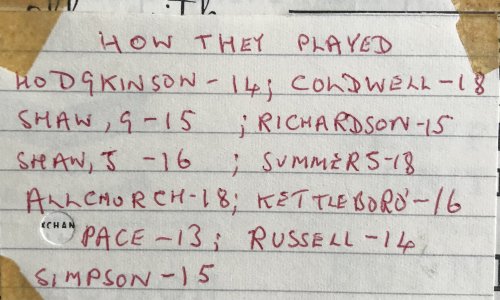 HOW THEY PLAYED
HODGKINSON - 14; COLDWELL - 18
SHAW, G - 15 ; RICHARDSON - 15
SHAW, J - 16 ; SUMMERS - 18
ALLCHURCH - 18; KETTLEBORO' - 16
PACE - 13; RUSSELL - 14
SIMPSON - 15